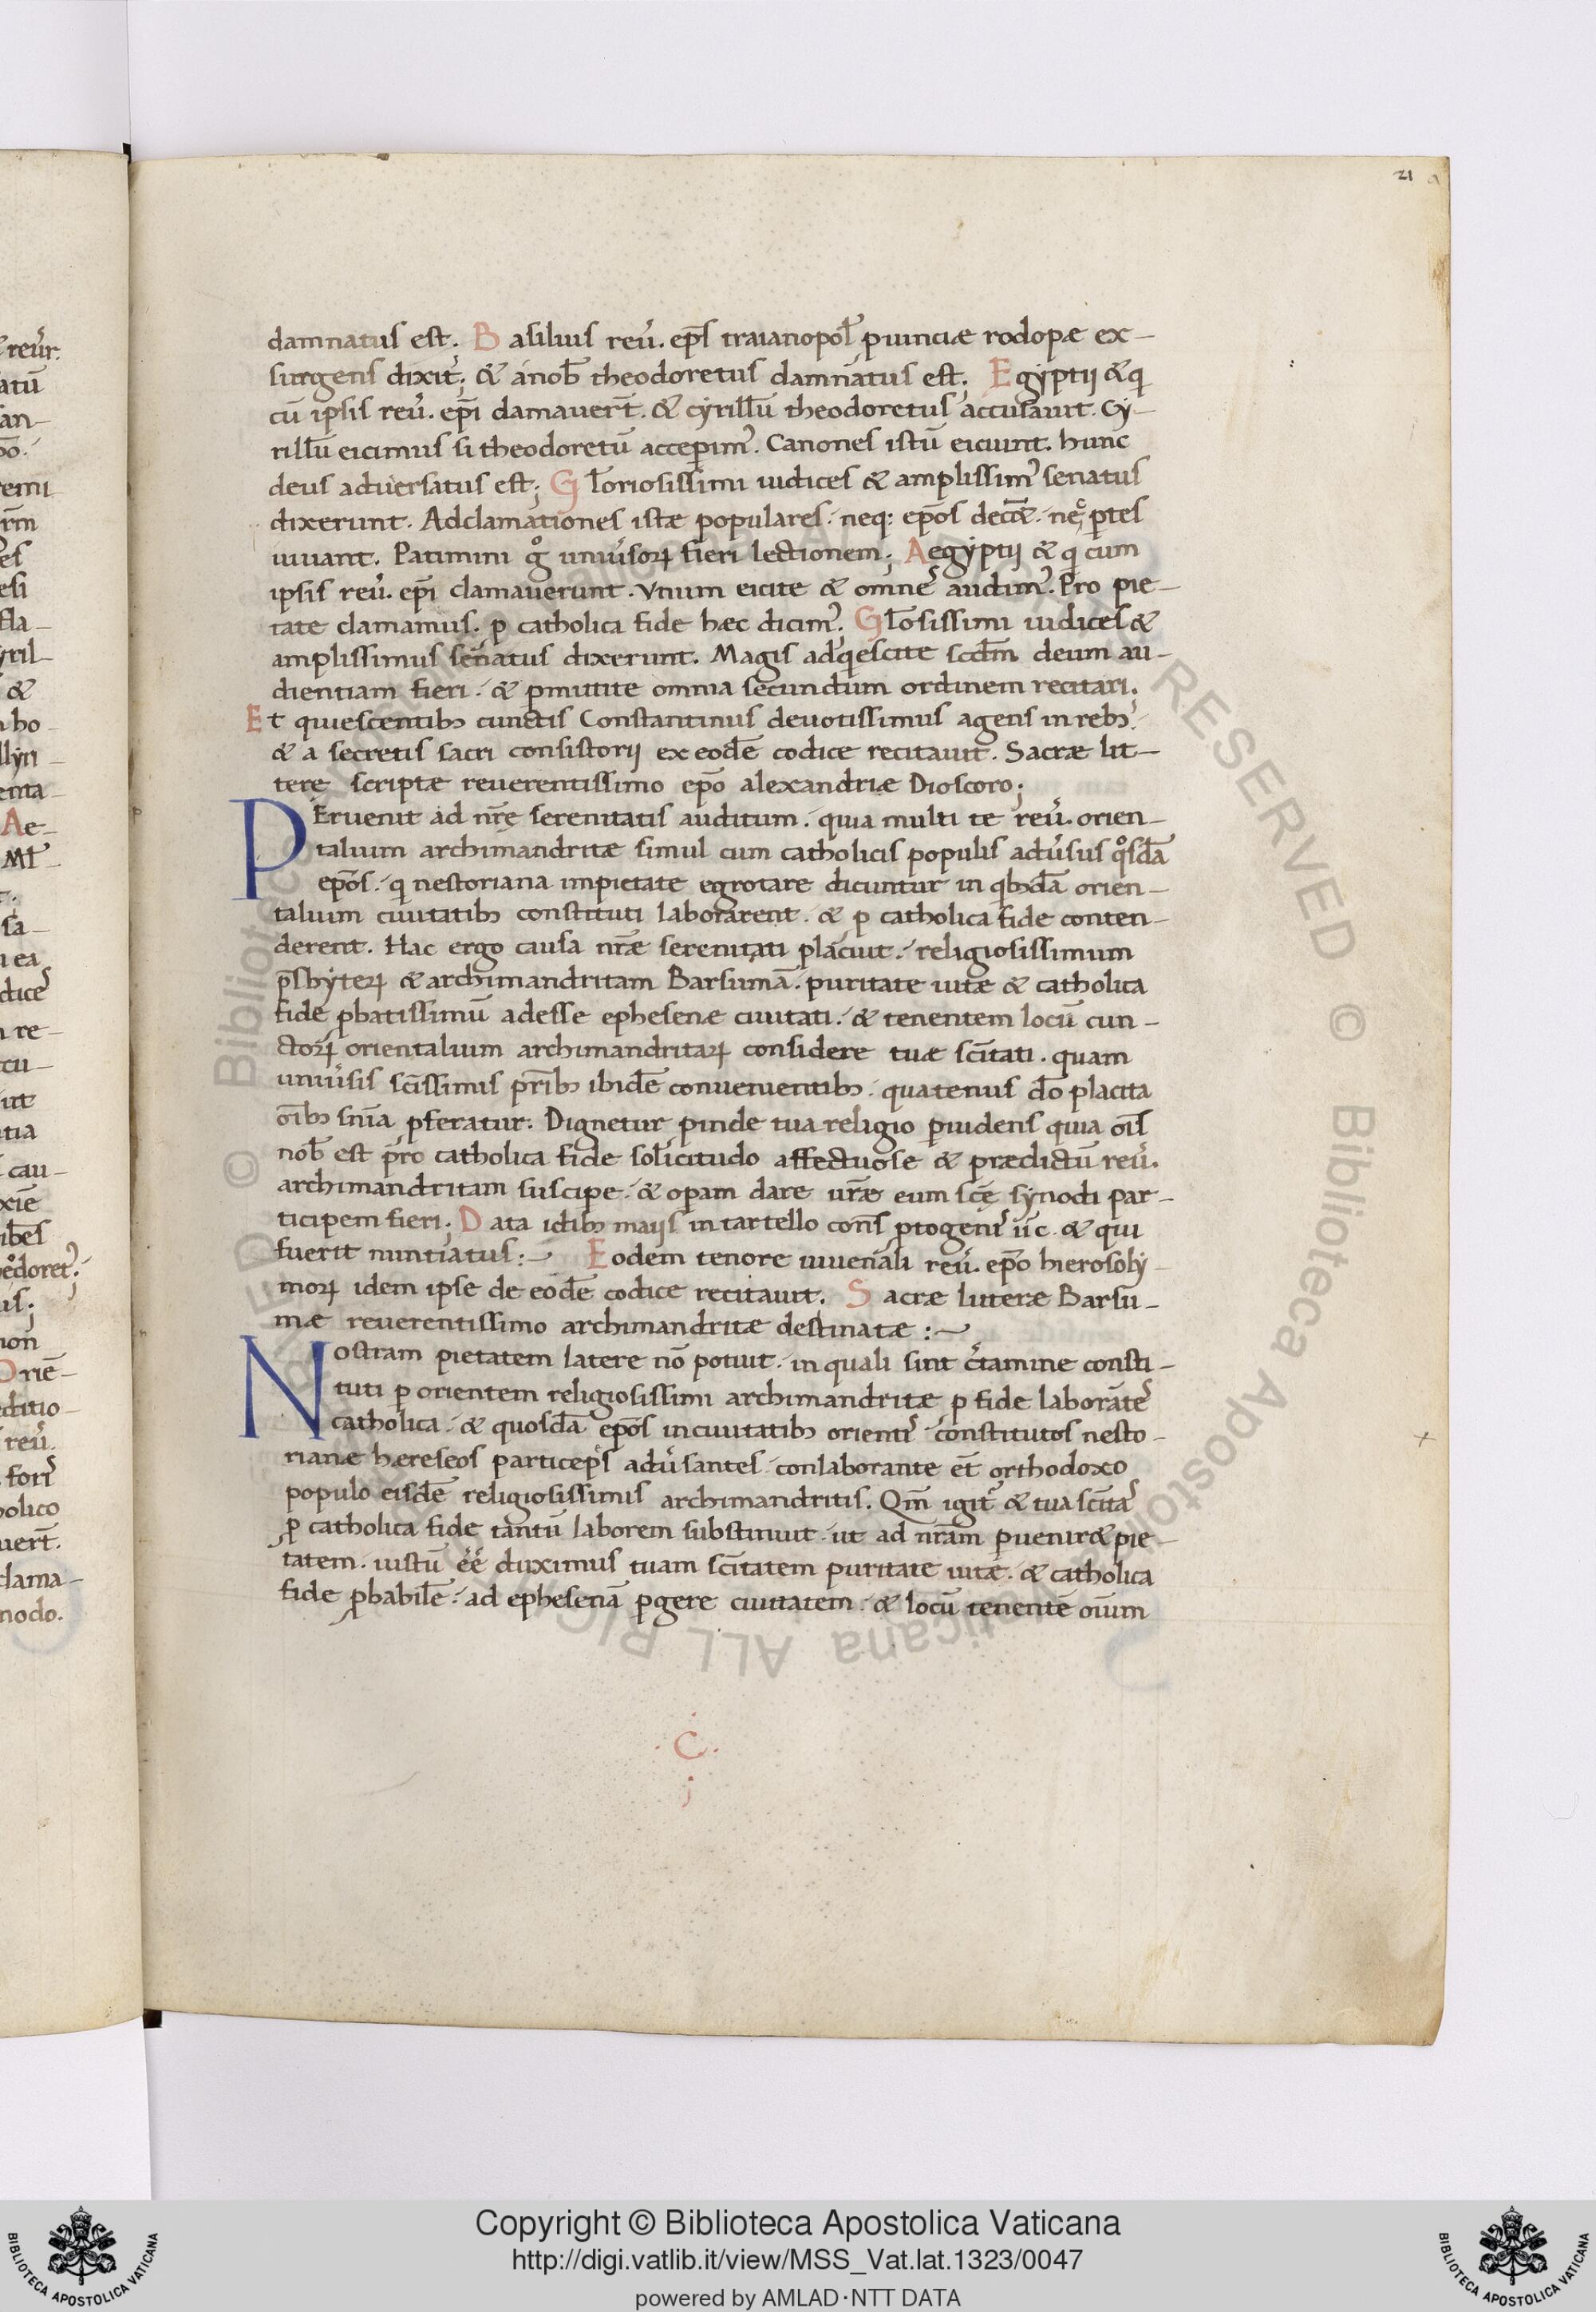 21
damnatus est. Basilius reu̅. ep̅s traianopol̅ puinciæ rodopæ ex-
surgens dixit; & anob̅ theodoretus damnatus est; Egyptij & q
cu̅ ipsis reu̅. ep̅i damauer̅t. & cyrillu̅ theodoretus accusauit. Cy-
rillu̅ eicimus si theodoretu̅ acceperim᾽. Canones istu̅ eiciunt. hunc
deus aduersatus est; Gl̅oriosissimi iudices & amplissim᾽ senatus
dixerunt. Adclamationes istæ populares. neq; ep̅os dec&̅. neq; p̱tes
iuuant. Patimini g° uniu᾽soꝝ fieri lectionem; Aegyptij & q cum
ipsis reu̅. ep̅i clamauerunt. Vnum eicite & omne᾽ audim᾽. Pro pie-
tate clamamus. p catholica fide hæc dicim᾽; Gl̅osissimi iudices &
amplissimus senatus dixerunt. Magis adq̇escite scd̅m deum au-
dientiam fieri. & pmittite omnia secundum ordinem recitari.
Et quiescentibꝫ cunctis Constantinus deuotissimus agens in rebꝫ.
& a secretis sacri consistorij ex eode̅ codice recitauit. Sacræ lit-
tere scriptæ reuerentissimo ep̅o alexandriæ Dioscoro;
Peruenit ad nr̅ę serenitatis auditum. quia multi te reu̅. orien-
talium archimandritæ simul cum catholicis populis adu᾽sus q°sda̅
ep̅os. q nestoriana impietate egrotare dicuntur in qbꝫda̅ orien-
talium ciuitatibꝫ constituti laborarent. & p catholica fide conten-
derent. Hac ergo causa nr̅æ serenitati placuit. religiosissimum
p̅sbyteꝝ & archimandritam Barsuma̅. puritate uitæ & catholica
fide pbatissimu̅ adesse ephesenæ ciuitati. & tenentem locu̅ cun-
ctoꝝ orientalium archimandritaꝝ considere tuæ sc̅itati. quam
uniu᾽sis sc̅issimis pr̅ibꝫ ibide̅ conuenientibꝫ. quatenus do̅ placita
o̅ibꝫ sn̅ia pferatur. Dignetur pinde tua religio puidens quia o̅is
nob̅ est pro catholica fide solicitudo affectuose & prædictu̅ reu̅.
archimandritam suscipe. & opam dare ur̅æ eum sc̅ę synodi par-
ticipem fieri; Data idibꝫ maijs in tartello con̅s ptogeni᾽ u̅c & qui
fuerit nuntiatus:- Eodem tenore iuuenali reu̅. ep̅o hierosoly-
moꝝ idem ipse de eode̅ codice recitauit. Sacræ literæ Barsu-
mæ reuerentissimo archimandritæ destinatæ:-
Nostram pietatem latere no̅ potuit. in quali sint c᾽tamine consti-
tuti p orientem religiosissimi archimandritæ p fide laborante᾽
catholica. & quosda̅ ep̅os in ciuitatibꝫ orienti᾽ constitutos nesto-
rianæ hæreseos particep̅s adu᾽santes. conlaborante et̅ orthodoxo
populo eisde̅ religiosissimis archimandritis. Qm̅ igit᾽ & tua sc̅ita᾽
p catholica fide tantu̅ laborem substinuit. ut ad nr̅am puenir& pie-
tatem. iustu̅ ee̅ duximus tuam sc̅itatem puritate uitæ. & catholica
fide pbabile̅. ad ephesena̅ pgere ciuitatem. & locu̅ tenente̅ oi̅um
.C.
Copyright © Biblioteca Apostolica Vaticana
http://digi.vatlib.it/view/MSS_Vat.lat.1323/0047
powered by AMLAD·NTT DATA